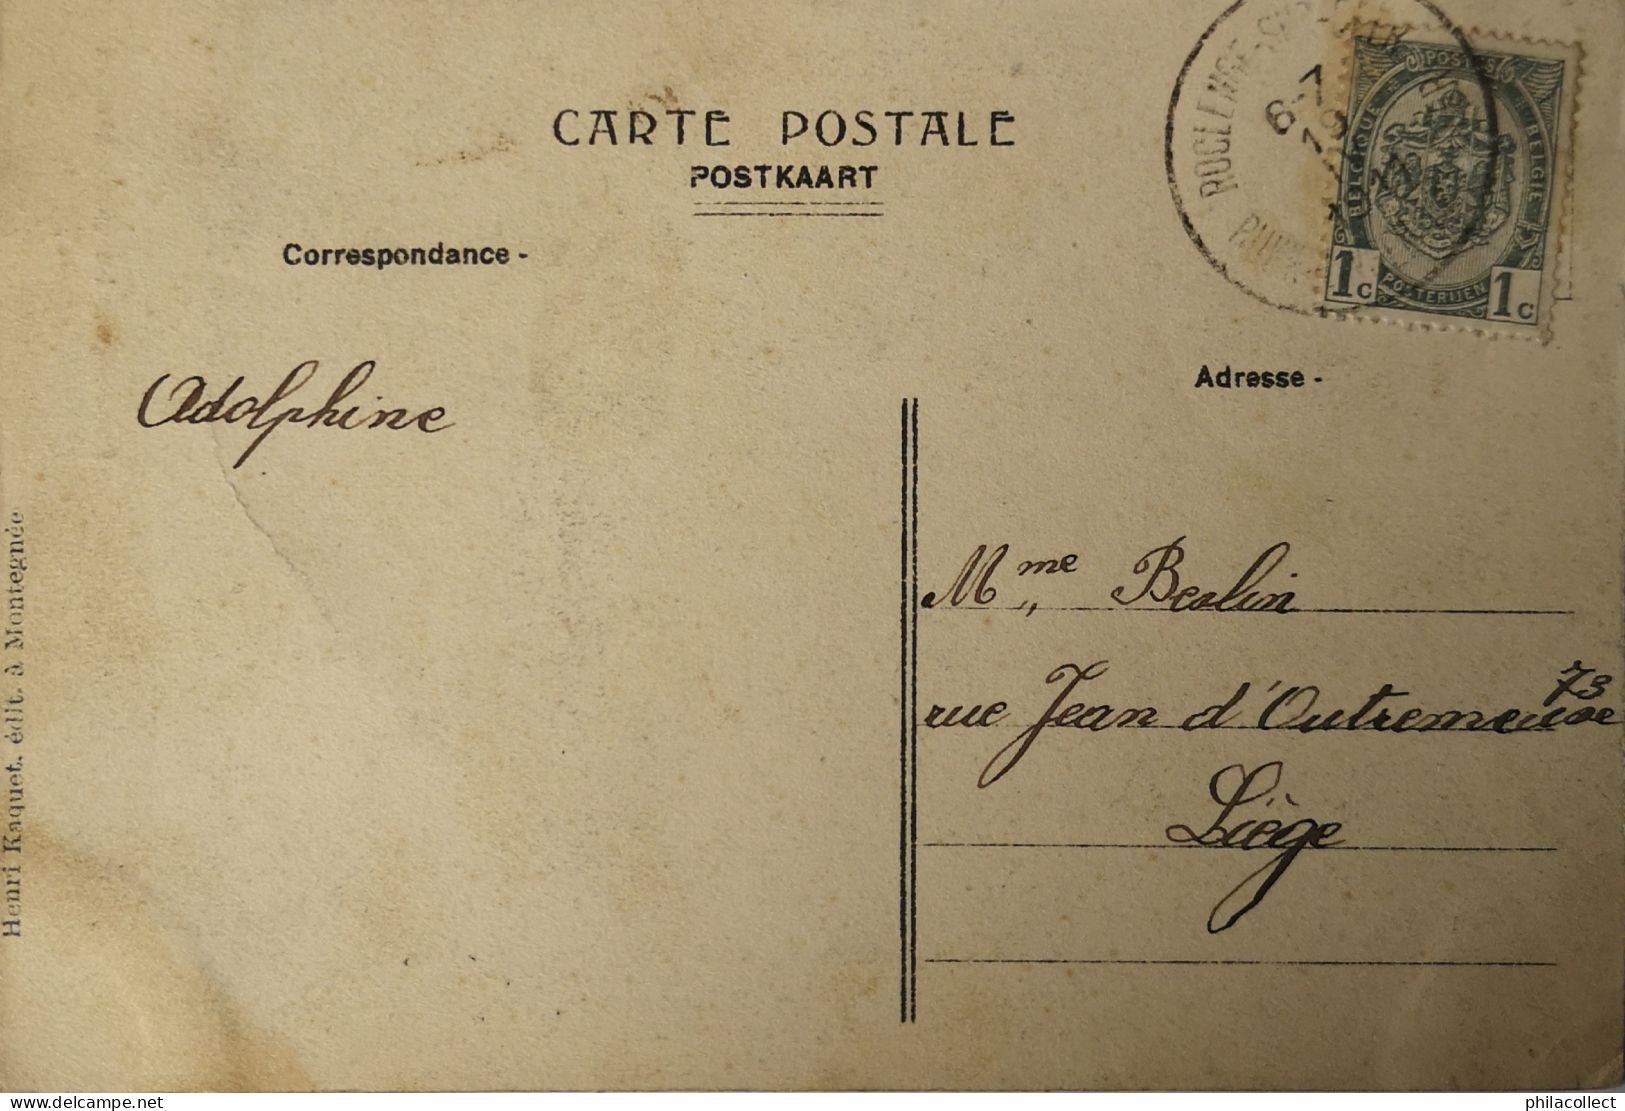 CARTE POSTALE
POSTKAART
Correspondance -
Adresse -
6-7
19
POSTES
BELGIQUE
BELGIE
POSTERIJEN
1c 1c
Adolphine
Mme Berlin
73
rue Jean d'Outremeuse
Liège
Henri Kaquet, édit. à Montegnée
delcampe.net
philacollect